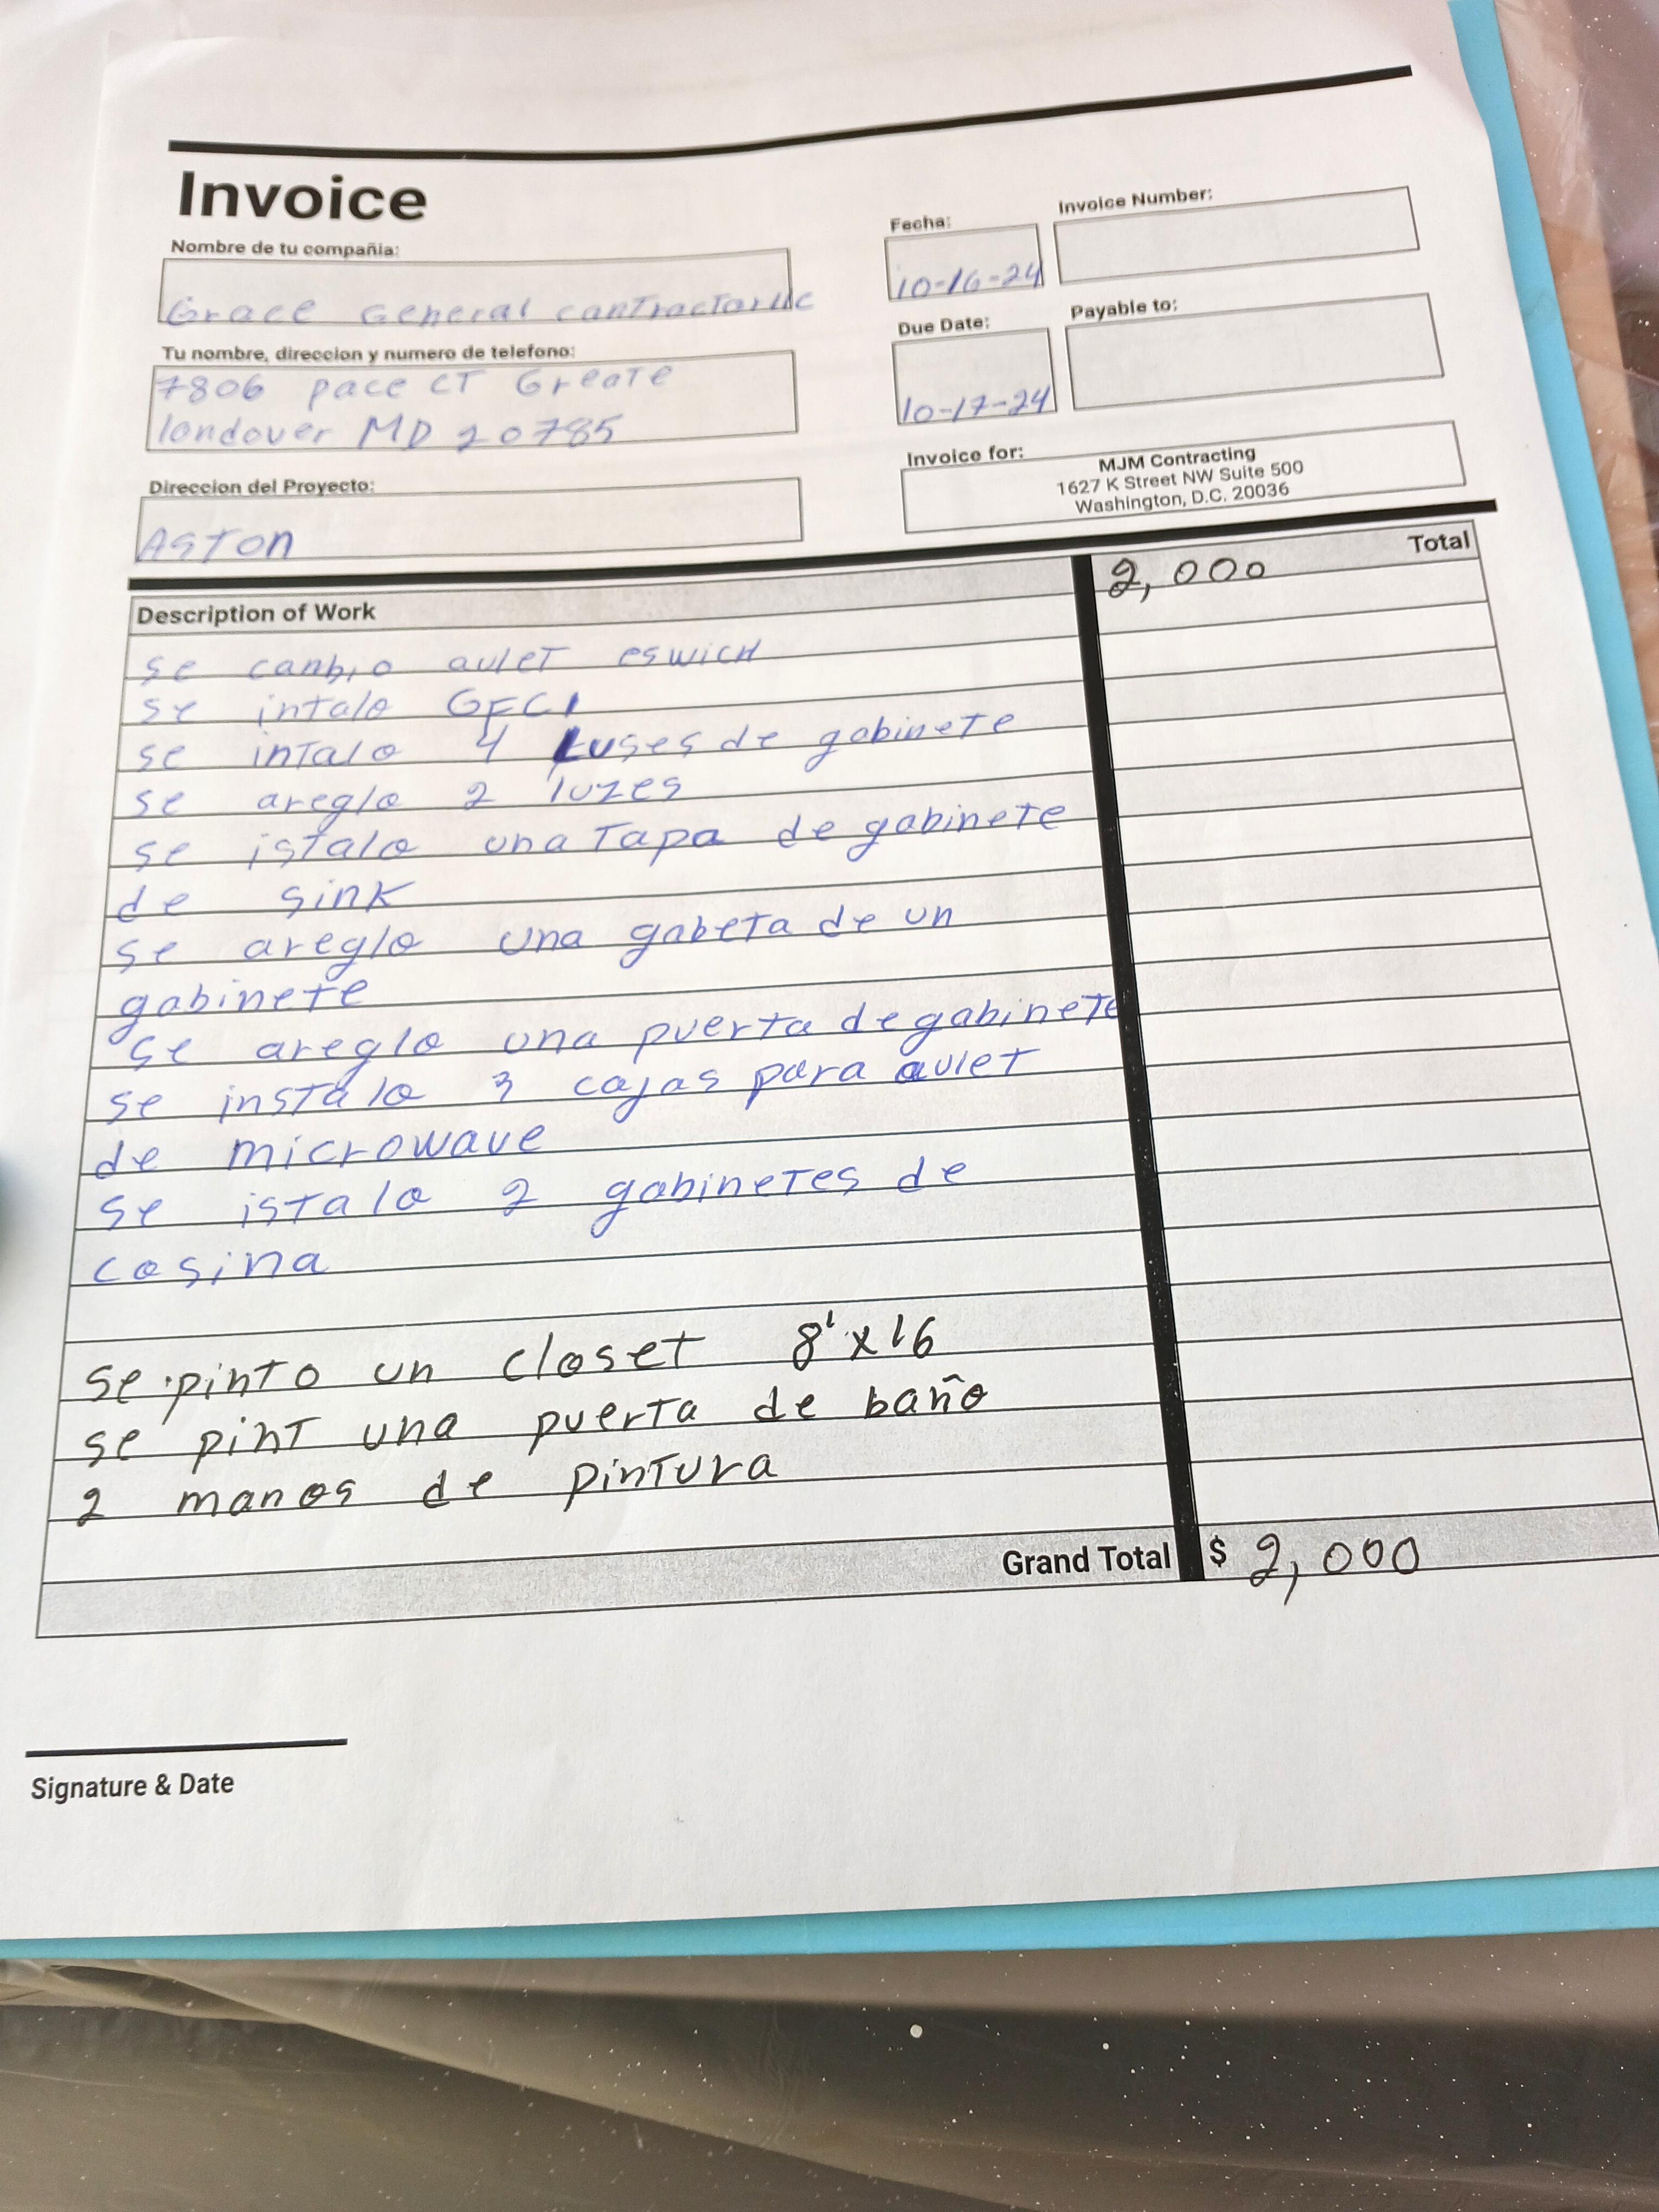 Invoice
Nombre de tu compañia:
Grace General contractor llc
Fecha:
10-16-24
Invoice Number:
Tu nombre, direccion y numero de telefono:
7806 pace CT Greate
landover MD 20785
Due Date:
10-17-24
Payable to:
Direccion del Proyecto:
ASTON
Invoice for:
MJM Contracting
1627 K Street NW Suite 500
Washington, D.C. 20036
Description of Work
Total
2,000
se canbio aulet eswich
se intalo GFCI
se intalo 4 Luses de gabinete
se areglo 2 luzes
se istalo una Tapa de gabinete
de sink
se areglo una gabeta de un
gabinete
se areglo una puerta de gabinete
se instalo 3 cajas para aulet
de microwave
se istalo 2 gabinetes de
cosina
se pinto un closet 8'x16
se pint una puerta de baño
2 manos de pintura
Grand Total $ 2,000
Signature & Date